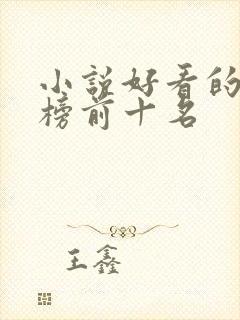 小说好看的
榜前十名
王鑫